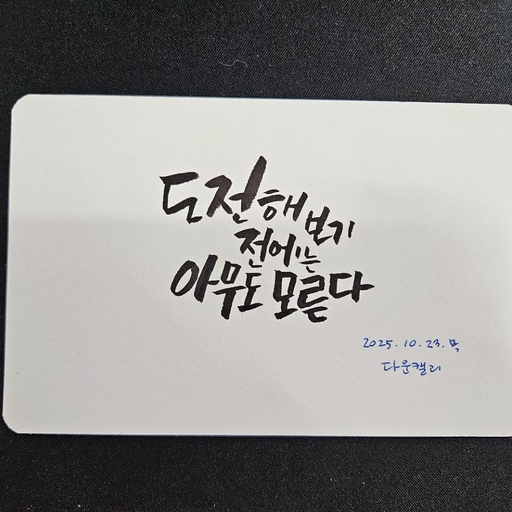 도전해보기
전에는
아무도 모른다
2025. 10. 23. 목
다운캘리